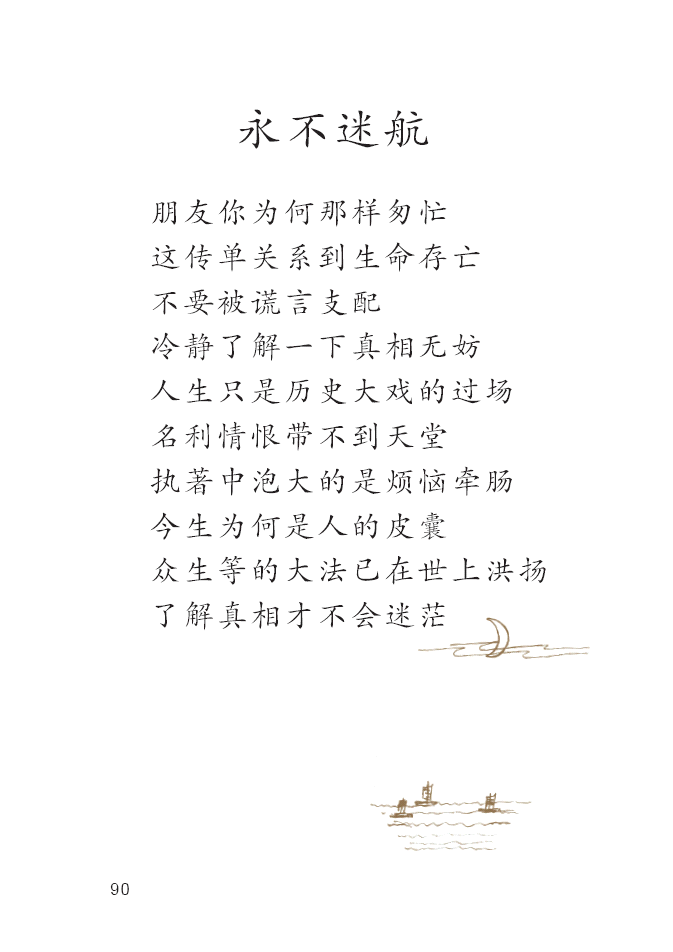 永不迷航
朋友你为何那样匆忙
这传单关系到生命存亡
不要被谎言支配
冷静了解一下真相无妨
人生只是历史大戏的过场
名利情恨带不到天堂
执著中泡大的是烦恼牵肠
今生为何是人的皮囊
众生等的大法已在世上洪扬
了解真相才不会迷茫
90